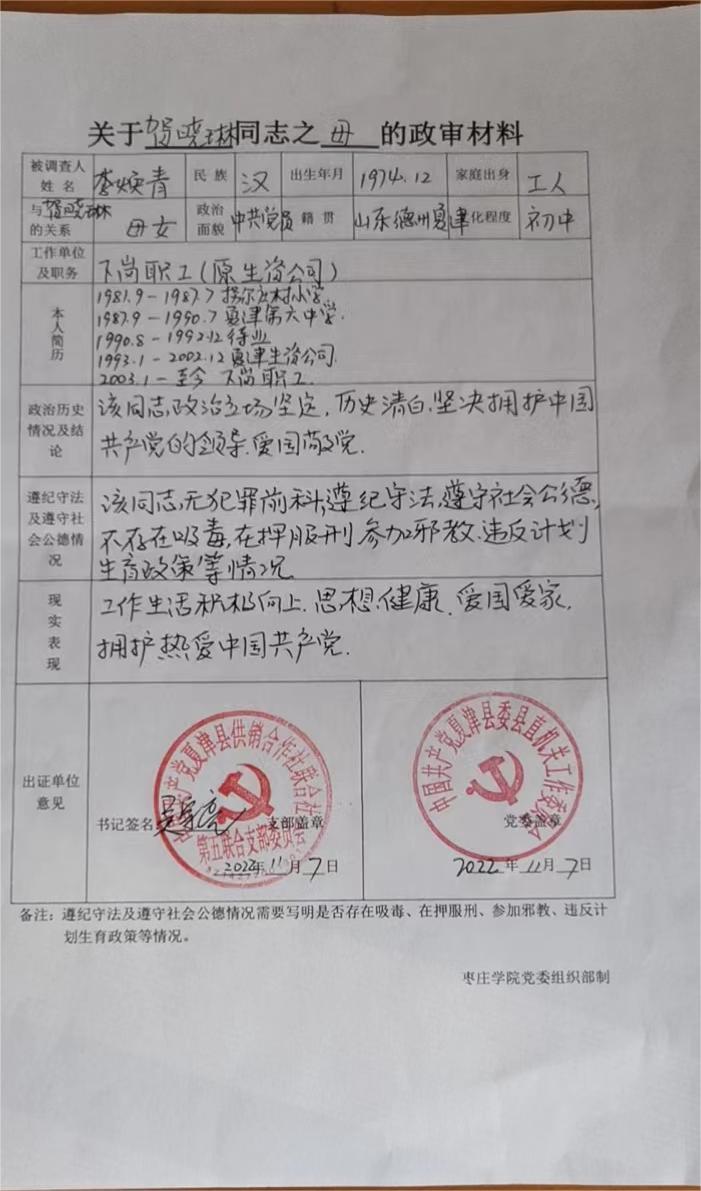 关于贺晓琳同志之母的政审材料
被调查人姓名 李焕青 民族 汉 出生年月 1974.12 家庭出身 工人
与贺晓琳的关系 母女 政治面貌 中共党员 籍贯 山东德州夏津 化程度 初中
工作单位及职务 下岗职工(原生资公司)
本人简历
1981.9-1987.7 拐尔庄村小学
1987.9-1990.7 夏津第六中学.
1990.8-1992.12 待业
1993.1-2002.12 夏津生资公司.
2003.1-至今 下岗职工.
政治历史情况及结论
该同志,政治立场坚定,历史清白.坚决拥护中国
共产党的领导.爱国敬党.
遵纪守法及遵守社会公德情况
该同志,无犯罪前科,遵纪守法,遵守社会公德,
不存在吸毒,在押服刑.参加邪教.违反计划
生育政策等情况
现实表现
工作生活积极向上.思想健康.爱国爱家.
拥护热爱中国共产党.
出证单位意见
中国共产党夏津县供销合作社联合社
第五联合支部委员会
书记签名 支部盖章
2022年11月7日
中国共产党夏津县委县直机关工作委员会
党委盖章
2022年11月7日
备注:遵纪守法及遵守社会公德情况需要写明是否存在吸毒、在押服刑、参加邪教、违反计
划生育政策等情况。
枣庄学院党委组织部制